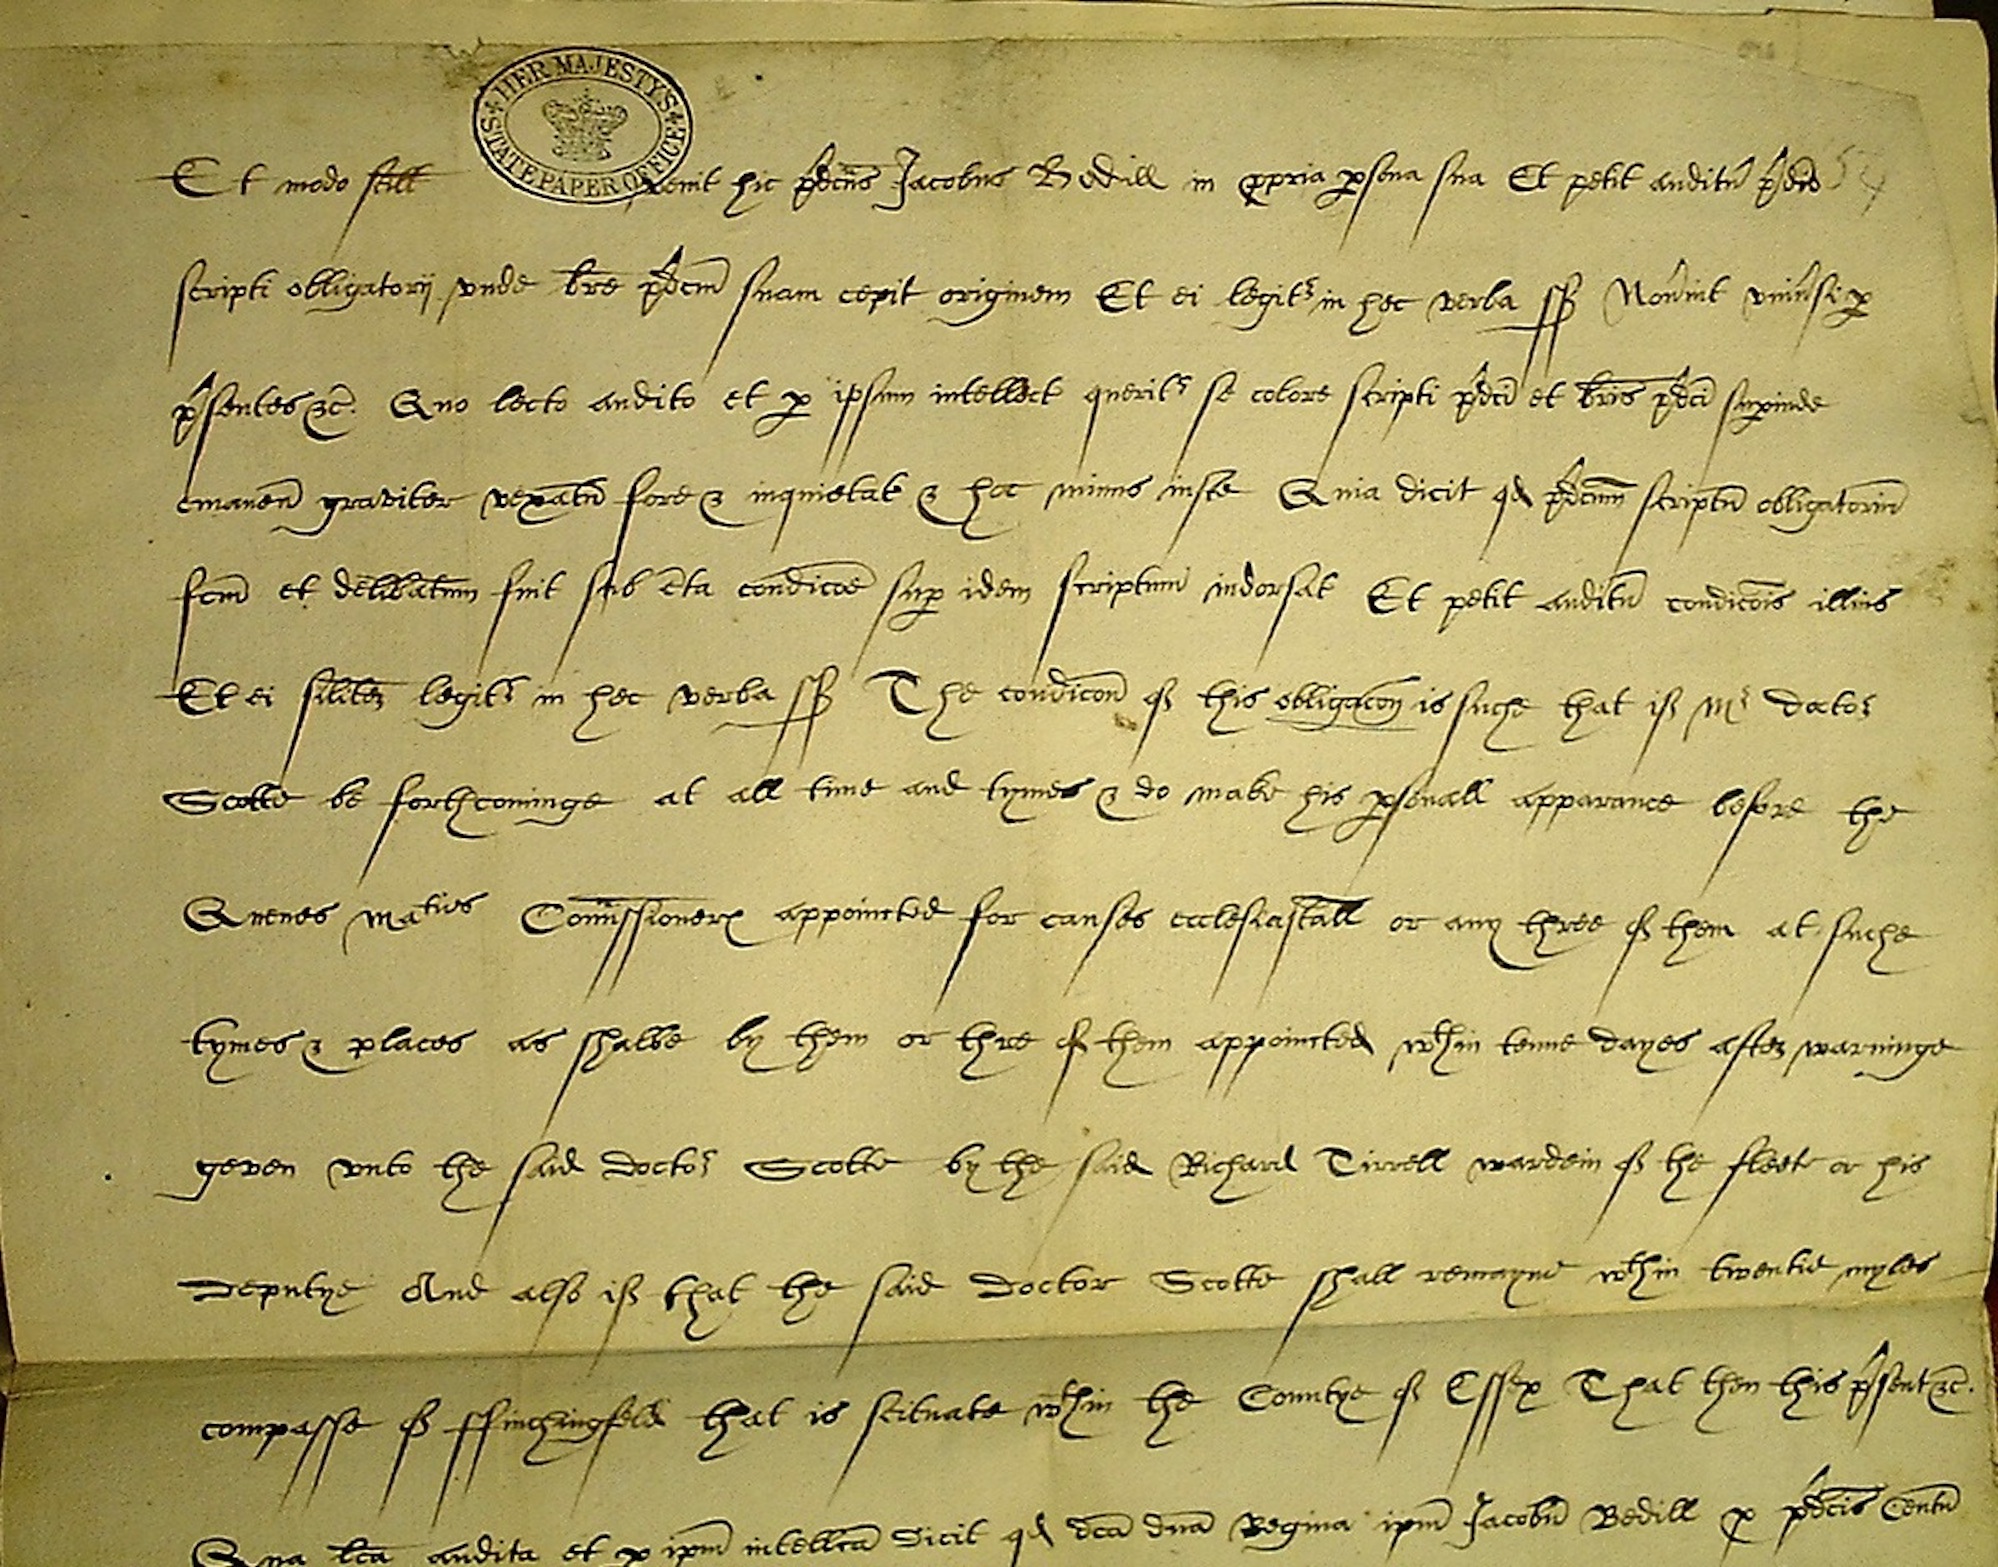 HER MAJESTY'S STATE PAPER OFFICE
Et modo scill venit hic p̄dcūs Jacobus Bedill in ppria psona sua Et petit auditū p̄dcō
scripti obligatorij vnde br̄e p̄dcm̄ suam cepit originem Et ei legitr in hec verba ss Nov̄int univ̄si p
p̄sentes &c̄. Quo lecto audito et p ipsum intellect queritr se colore scripti p̄dcī et br̄is p̄dcī supinde
emanen̄ graviter vexatū fore & inquietat & hoc minus iuste Quia dicit qd p̄dcum̄ scriptū obligatoriū
fcm̄ et delib̄atum fuit sub c̄ta condicōe sup idem scriptum indorsat Et petit auditū condicōis illius
Et ei silitez legitr in hec verba ss The condicōn of this obligacōn is suche that if Mr doctor
Scotte be forthcominge at all time and tymes & do make his psonall apparance before the
Quenes Maties Com̄issioners appoincted for causes ecclesiastall or any three of them at suche
tymes & places as shalbe by them or thre of them appoincted wthin tenne dayes after warninge
geven vnto the said doctor Scotte by the said Richard Tirrell wardein of the fleete or his
Deputye And also if that the said Doctor Scotte shall remayne wthin twentie myles
compasse of ffinchingfeld that is scituate wthin the Countye of Essex That then this p̄sent &c̄.
Qua lcā audita et p ipm̄ intellcā Dicit qd dcā dnā Regina ipm̄ Jacobū Bedill p p̄dcīs Centū